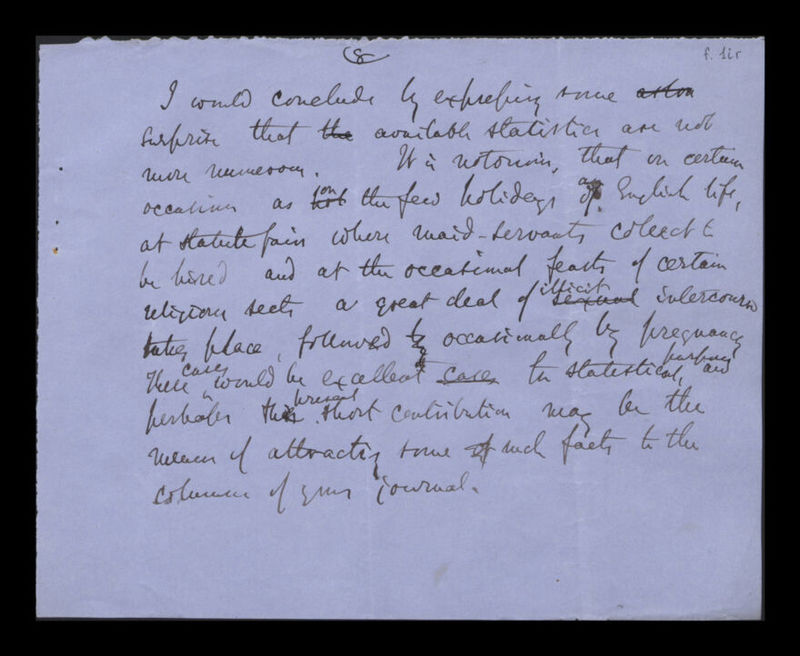 8
f. 11r
I would conclude by expressing some aston
surprise that the available statistics are not
more numerous. It is notorious, that on certain
occasions as on the few holidays of English life,
at statute fairs where maid-servants collect to
be hired and at the occasional feasts of certain
religious sects a great deal of illicit sexual intercourse
takes place, followed by occasionally by pregnancy
These cases would be excellent cases for statistical purposes, and
perhaps this present short contribution may be the
means of attracting some of such facts to the
columns of your journal.